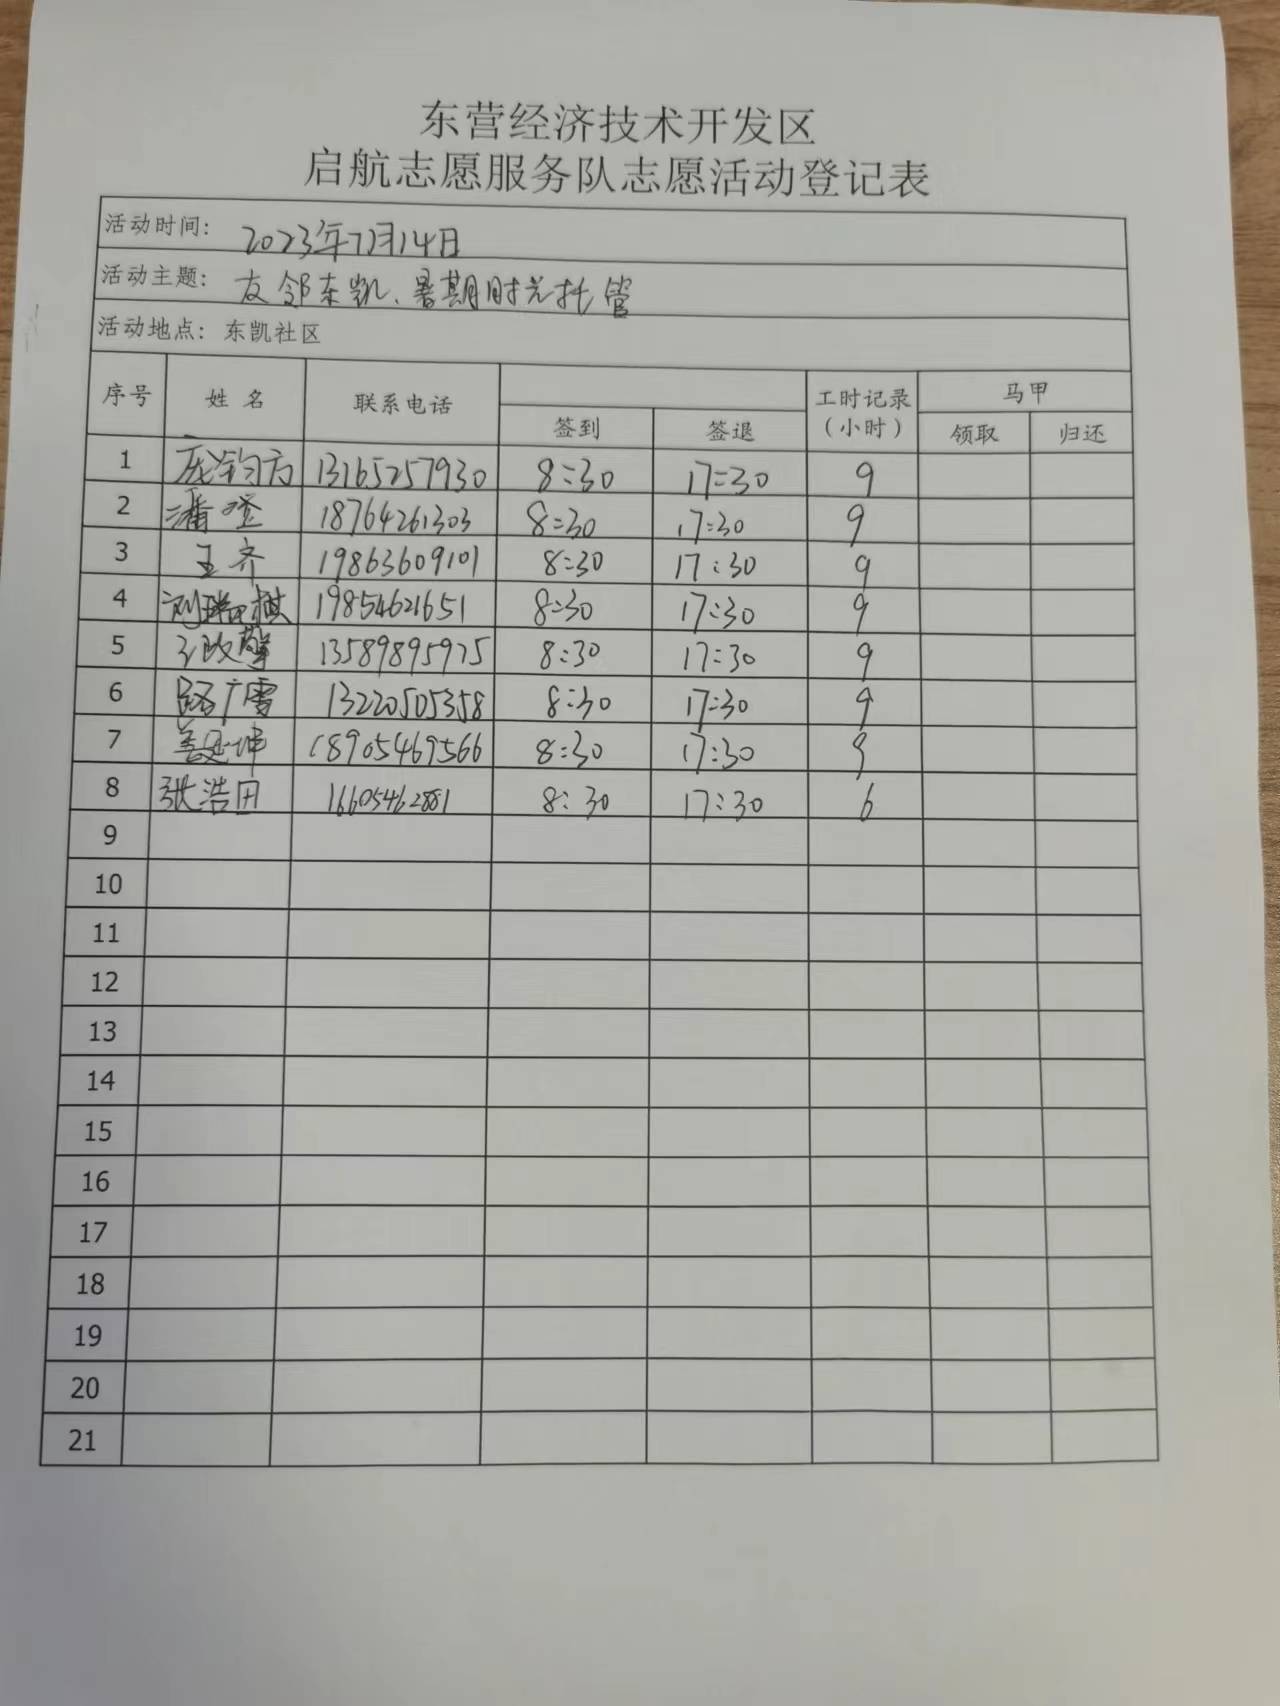 东营经济技术开发区
启航志愿服务队志愿活动登记表
活动时间： 2023年7月14日
活动主题： 友邻东凯、暑期时光托管
活动地点：东凯社区
序号 姓名 联系电话 签到 签退 工时记录（小时） 马甲 领取 归还
1 庞钧方 13165257930 8:30 17:30 9
2 潘登 18764261303 8:30 17:30 9
3 王齐 19863609101 8:30 17:30 9
4 刘 棋 19854621651 8:30 17:30 9
5 13589895975 8:30 17:30 9
6 路广雪 13220505358 8:30 17:30 9
7 姜延坤 18905469566 8:30 17:30 9
8 张浩田 16605462881 8:30 17:30 6
9
10
11
12
13
14
15
16
17
18
19
20
21